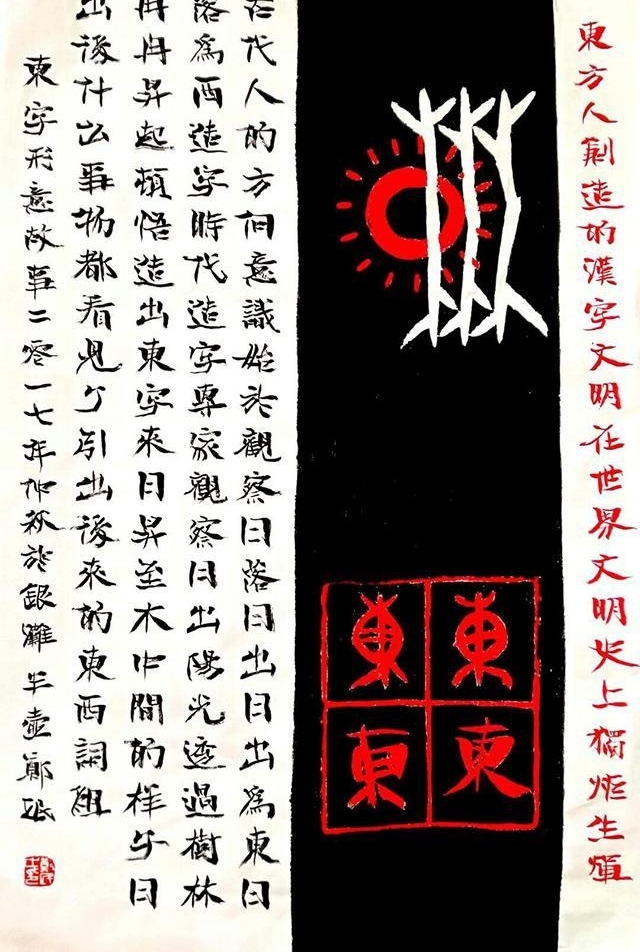 東方人剏造的漢字文明在世界文明史上獨炫生輝
東東
東東
古代人的方向意識始扵觀察日落日出日出為東日
落為西造字時代造字專家觀察日出陽光透過樹林
冉冉昇起頓悟造出東字來日昇至木中間的样子日
出後什么事物都看見了引出後來的東西詞組
東字形意故事二零一七年仲秋扵銀灘半壺鄭珉